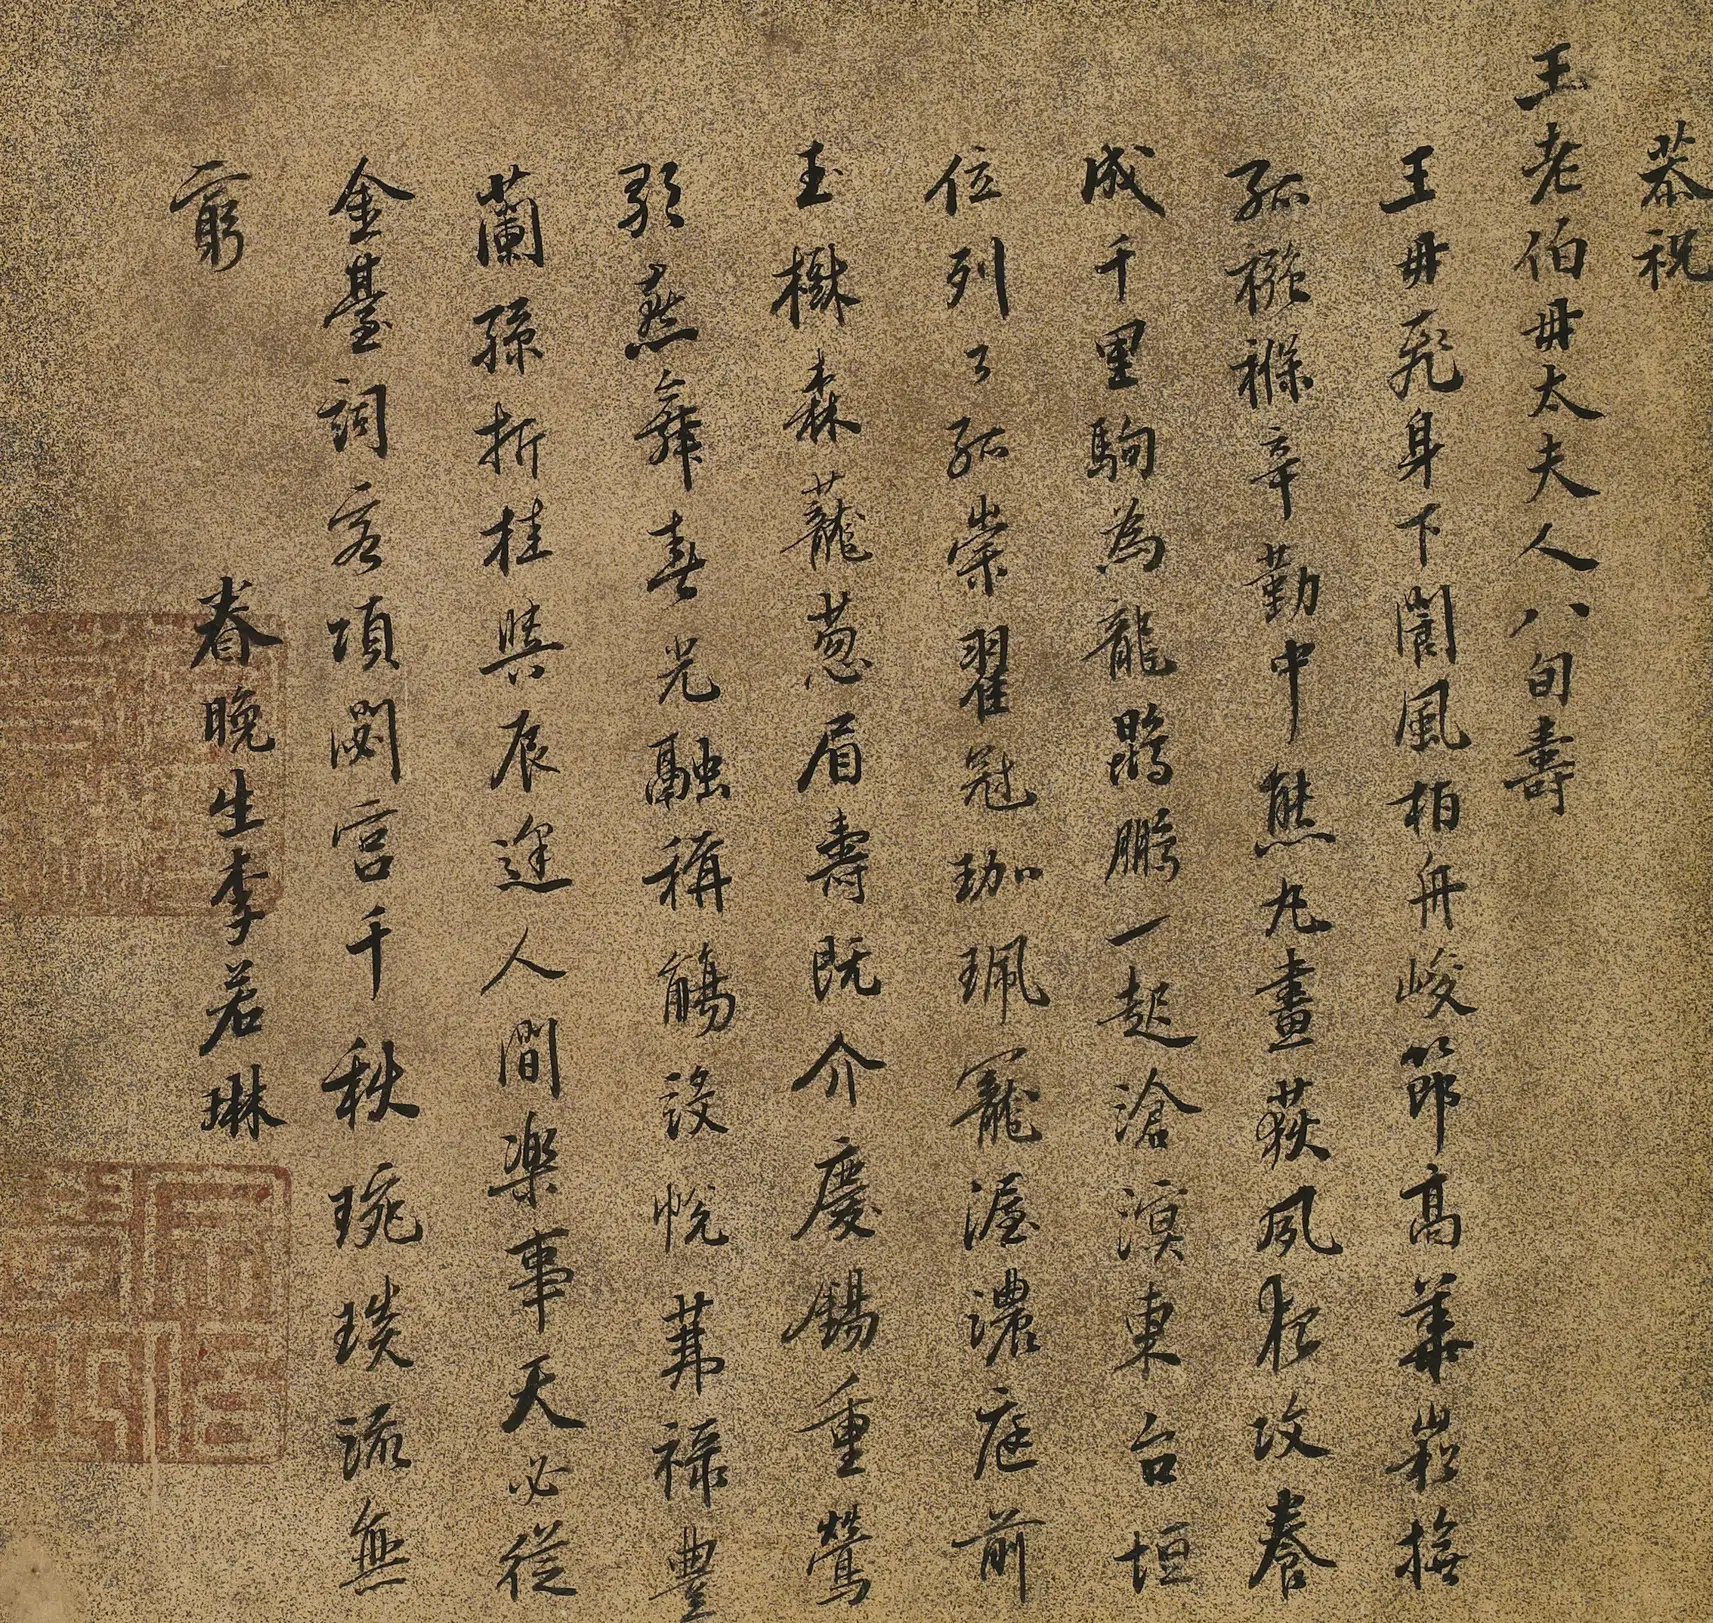 恭祝
王老伯毋太夫人八旬壽
王毋飛身下閬風柏舟峻節高華嵩撫
孤襁褓辛勤中熊丸畫荻夙夜攻養
成千里駒為龍鶚鵬一起滄溟東台垣
位列了孤崇翟冠珈珮寵渥濃庭前
玉樹森蘢葱眉壽既介慶錫重鶯
歌燕舞春光融稱觴設帨茀祿豐
蘭孫折桂與辰逢人間樂事天必從
金臺詞客頌閟宮千秋琬琰流無
窮
眷晚生李若琳